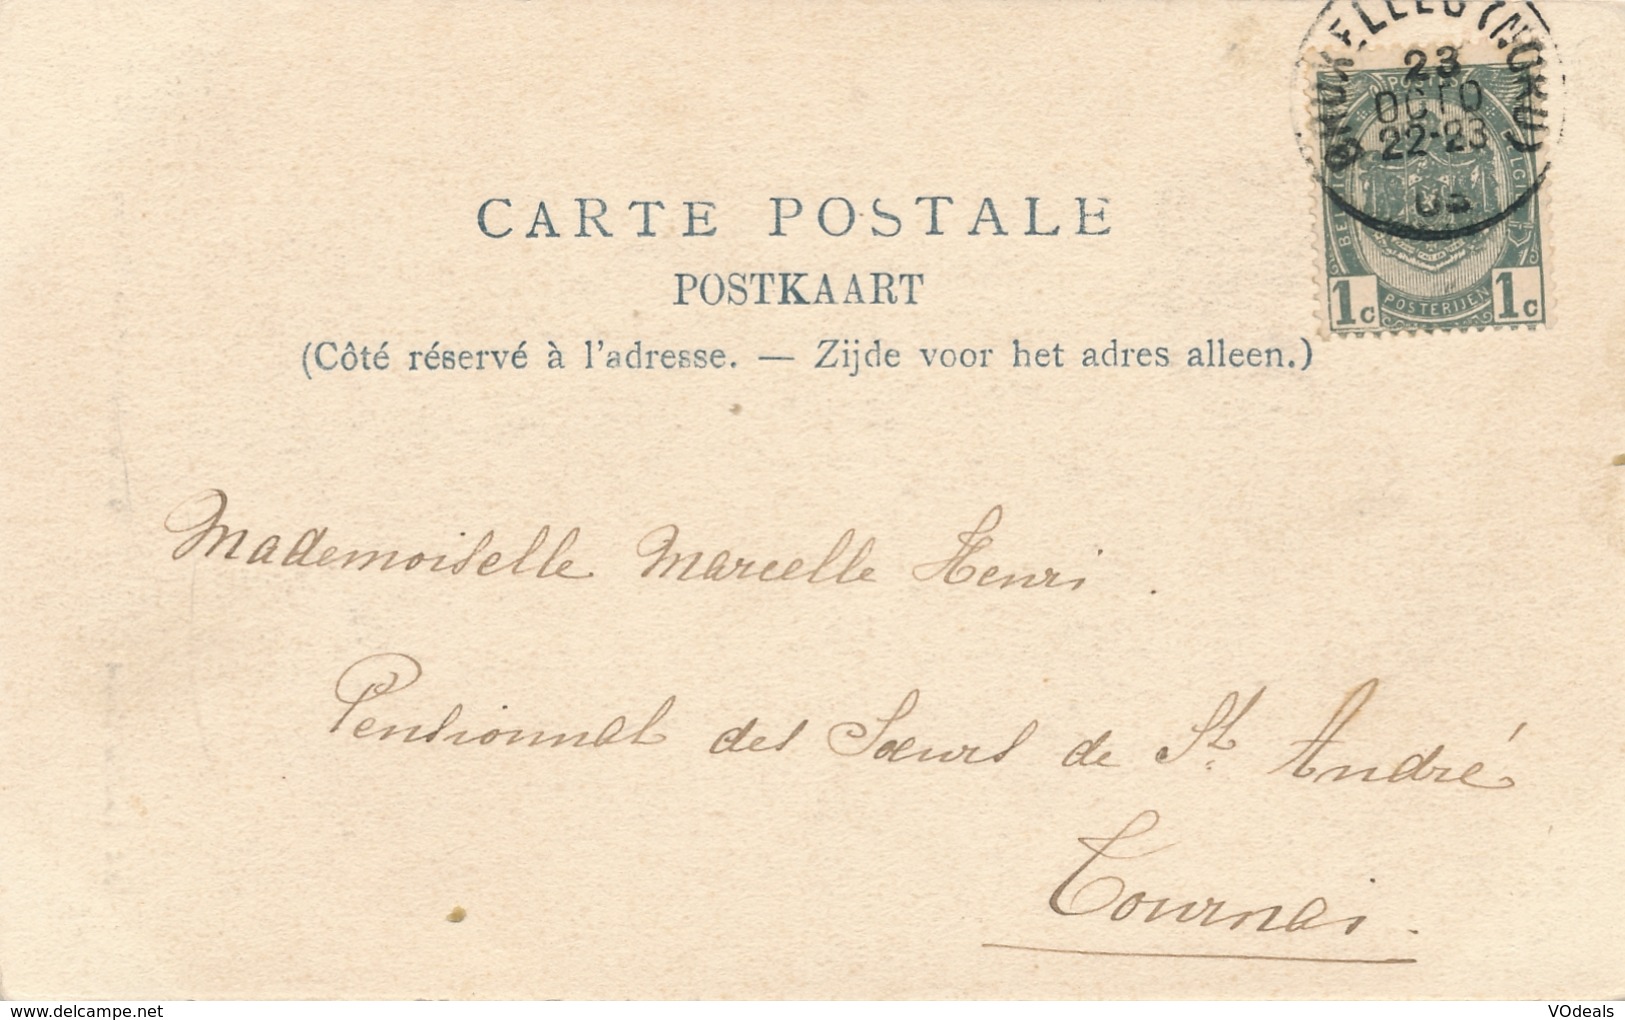 BRUXELLES (NORD)
23
OCTO
22-23
03
POSTES
BELGIQUE
BELGIË
1c POSTERIJEN 1c
CARTE POSTALE
POSTKAART
(Côté réservé à l'adresse. — Zijde voor het adres alleen.)
Mademoiselle Marcelle Henri.
Pensionnat des Sœurs de St. André
Tournai.
delcampe.net
VOdeals